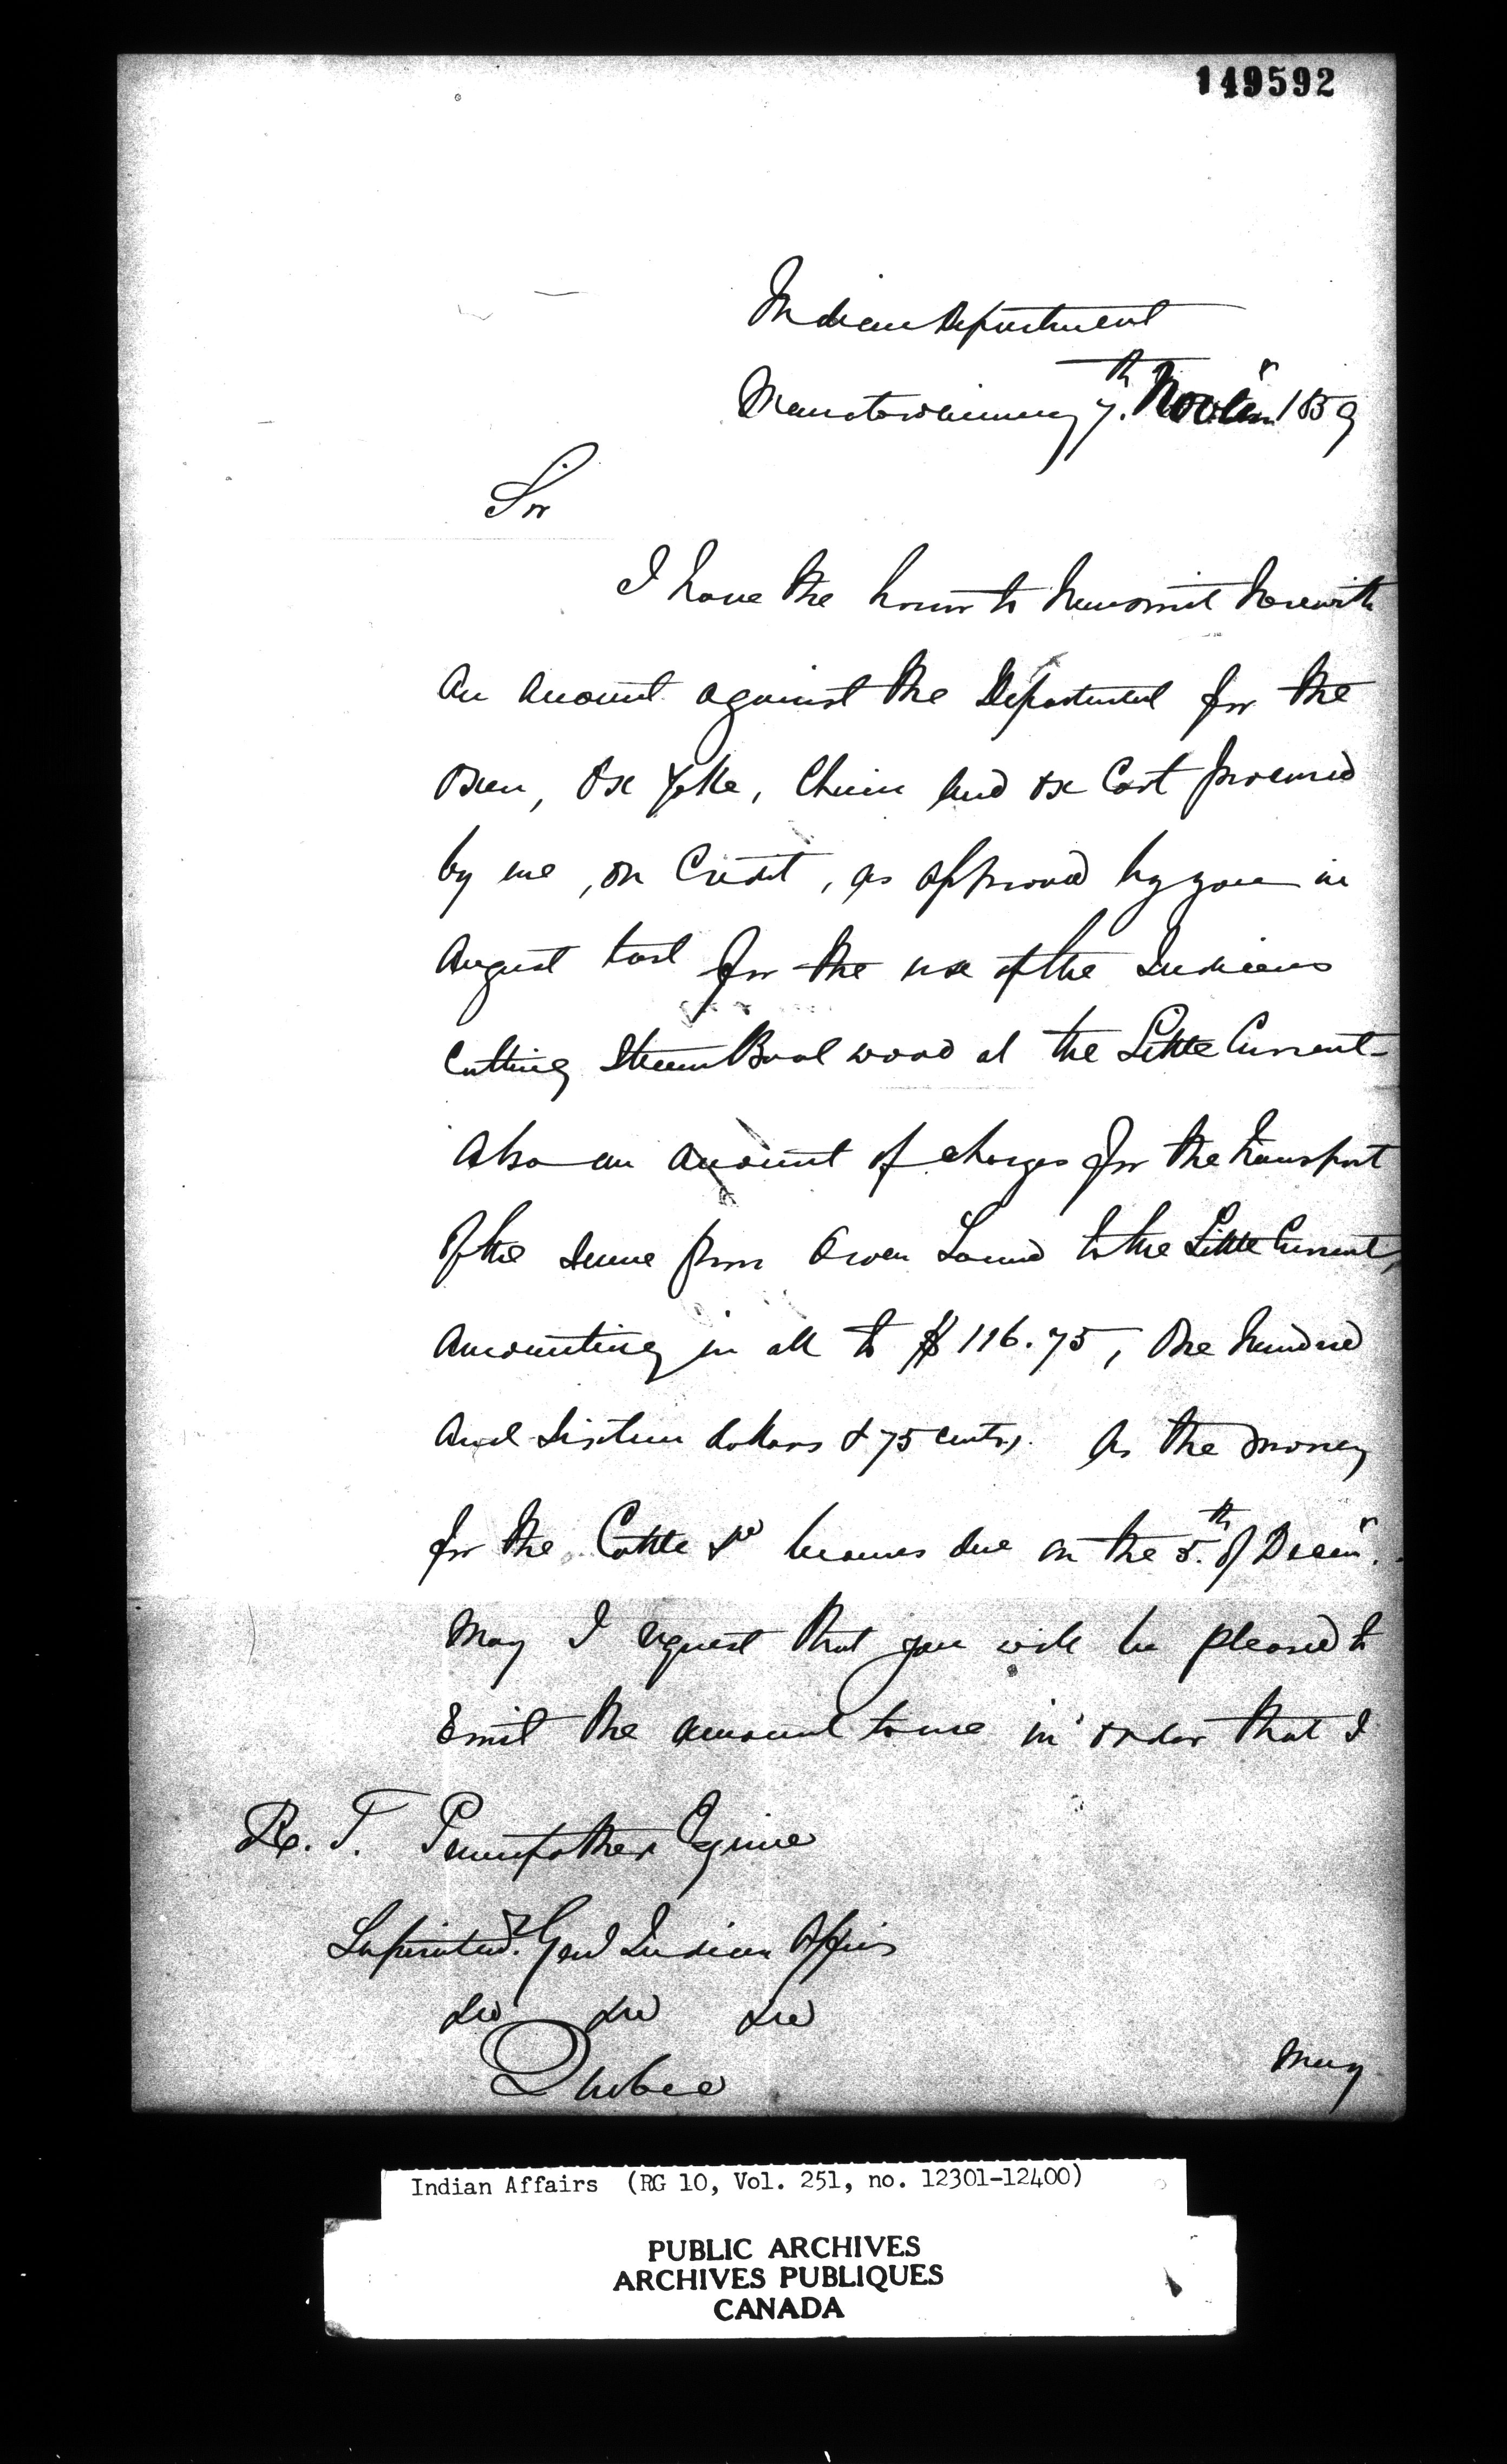 149592
Indian Department
Manitowaning 7.th Novem.r 1859
Sir
I have the honor to transmit herewith
an account against the Department for the
Oxen, Ox Yoke, Chain and Ox Cart procured
by me, on Credit, as approved by you in
August last for the use of the Indians
Cutting Steam Boat wood at the Little Current
Also an account of charges for the transport
of the same from Owen Sound to the Little Current,
amounting in all to $116.75, One hundred
and Sixteen dollars & 75 cents. As the money
for the Cattle &c becomes due on the 5.th of Decem.r
May I request that you will be pleased to
remit the amount to me in order that I
R. T. Pennefather Esquire
Superintend.t Genl Indian Affairs
&c &c &c
Quebec
May
Indian Affairs (RG 10, Vol. 251, no. 12301-12400)
PUBLIC ARCHIVES
ARCHIVES PUBLIQUES
CANADA